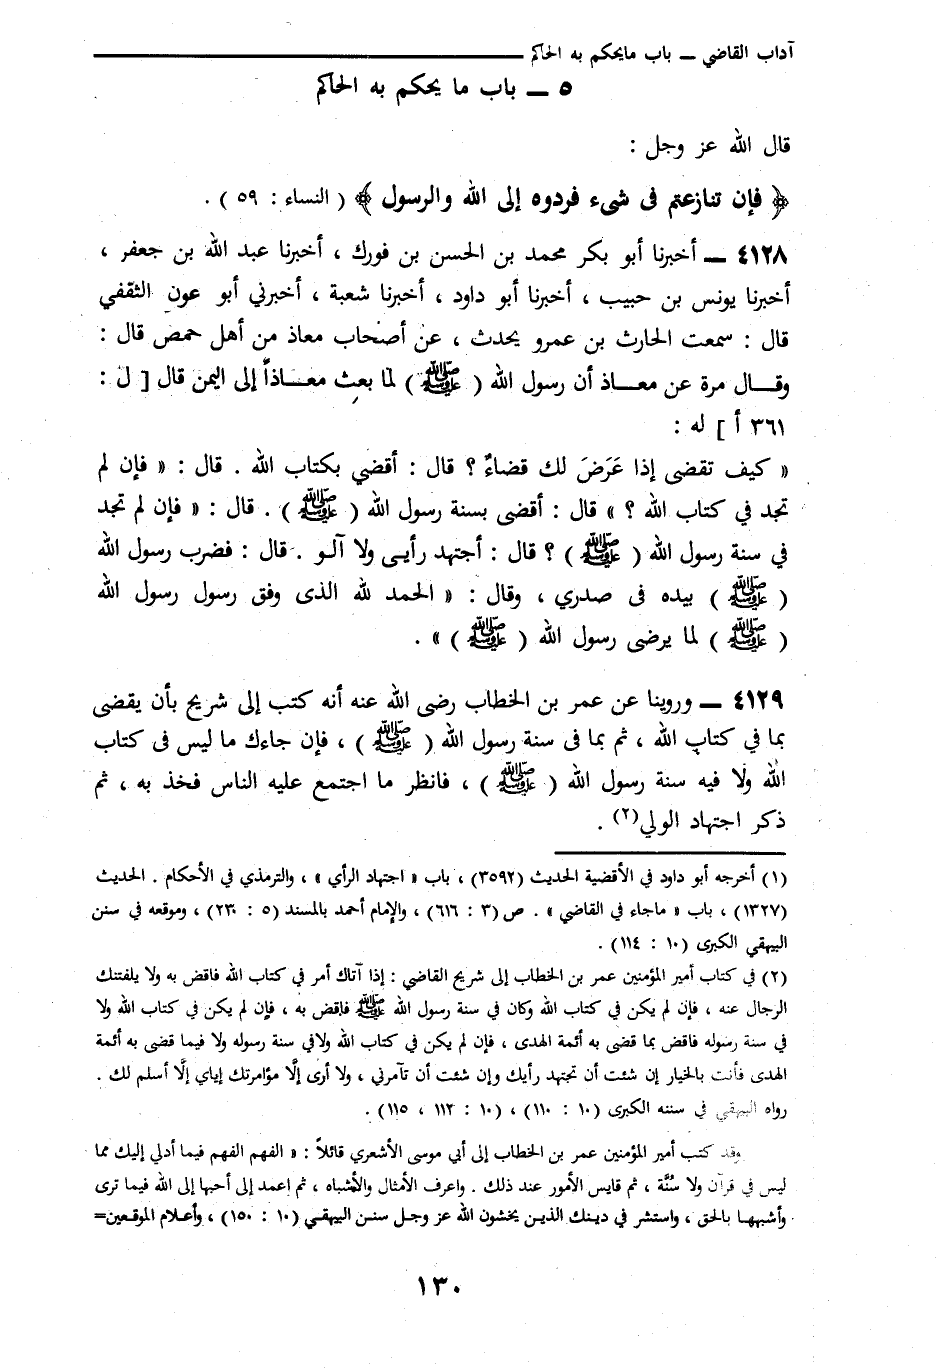 آداب القاضي ــ باب مايحكم به الحاكم
٥ ــ باب ما يحكم به الحاكم
قال الله عز وجل :
﴿ فإن تنازعتم فى شىء فردوه إلى الله والرسول ﴾ ( النساء : ٥٩ ) .
٤١٢٨ ــ أخبرنا أبو بكر محمد بن الحسن بن فورك ، أخبرنا عبد الله بن جعفر ،
أخبرنا يونس بن حبيب ، أخبرنا أبو داود ، أخبرنا شعبة ، أخبرني أبو عون الثقفي
قال : سمعت الحارث بن عمرو يحدث ، عن أصحاب معاذ من أهل حمص قال :
وقـال مرة عن معـاذ أن رسول الله ( ﷺ ) لما بعث معـاذاً إلى اليمن قال [ ل :
٣٦١ أ ] له :
« كيف تقضى إذا عَرَضَ لك قضاءٌ ؟ قال : أقضي بكتاب الله . قال : « فإن لم
تجد في كتاب الله ؟ » قال : أقضى بسنة رسول الله ( ﷺ ) . قال : « فإن لم تجد
في سنة رسول الله ( ﷺ ) ؟ قال : أجتهد رأيـى ولا آلـو . قال : فضرب رسول الله
( ﷺ ) بيده فى صدري ، وقال : « الحمد لله الذى وفق رسول رسول الله
( ﷺ ) لما يرضى رسول الله ( ﷺ ) » .
٤١٢٩ ــ وروينا عن عمر بن الخطاب رضى الله عنه أنه كتب إلى شريح بأن يقضى
بما في كتاب الله ، ثم بما فى سنة رسول الله ( ﷺ ) ، فإن جاءك ما ليس فى كتاب
الله ولا فيه سنة رسول الله ( ﷺ ) ، فانظر ما اجتمع عليه الناس فخذ به ، ثم
ذكر اجتهاد الولي(٢) .
(١) أخرجه أبو داود في الأقضية الحديث (٣٥٩٢) ، باب « اجتهاد الرأي » ، والترمذي في الأحكام . الحديث
(١٣٢٧) ، باب « ماجاء في القاضي » . ص (٣ : ٦١٦) ، والإمام أحمد بالمسند (٥ : ٢٣٠) ، وموقعه في سنن
البيهقي الكبرى (١٠ : ١١٤) .
(٢) في كتاب أمير المؤمنين عمر بن الخطاب إلى شريح القاضي : إذا أتاك أمر في كتاب الله فاقض به ولا يلفتنك
الرجال عنه ، فإن لم يكن في كتاب الله وكان في سنة رسول الله ﷺ فاقض به ، فإن لم يكن في كتاب الله ولا
في سنة رسوله فاقض بما قضى به أئمة الهدى ، فإن لم يكن في كتاب الله ولافي سنة رسوله ولا فيما قضى به أئمة
الهدى فأنت بالخيار إن شئت أن تجتهد رأيك وإن شئت أن تآمرني ، ولا أرى إلَّا مؤامرتك إياي إلَّا أسلم لك .
رواه البيهقي في سننه الكبرى (١٠ : ١١٠) ، (١٠ : ١١٢ ، ١١٥) .
وقد كتب أمير المؤمنين عمر بن الخطاب إلى أبي موسى الأشعري قائلاً : « الفهم الفهم فيما أدلي إليك مما
ليس في قرآن ولا سُنَّة ، ثم قايس الأمور عند ذلك . واعرف الأمثال والأشباه ، ثم اعمد إلى أحبها إلى الله فيما ترى
وأشبهها بالحق ، واستشر في دينك الذين يخشون الله عز وجل سنن البيهقي (١٠ : ١٥٠) ، وأعلام الموقعين=
١٣٠